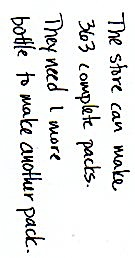 The store can make
363 complete packs.
They need 1 more
bottle to make another pack.